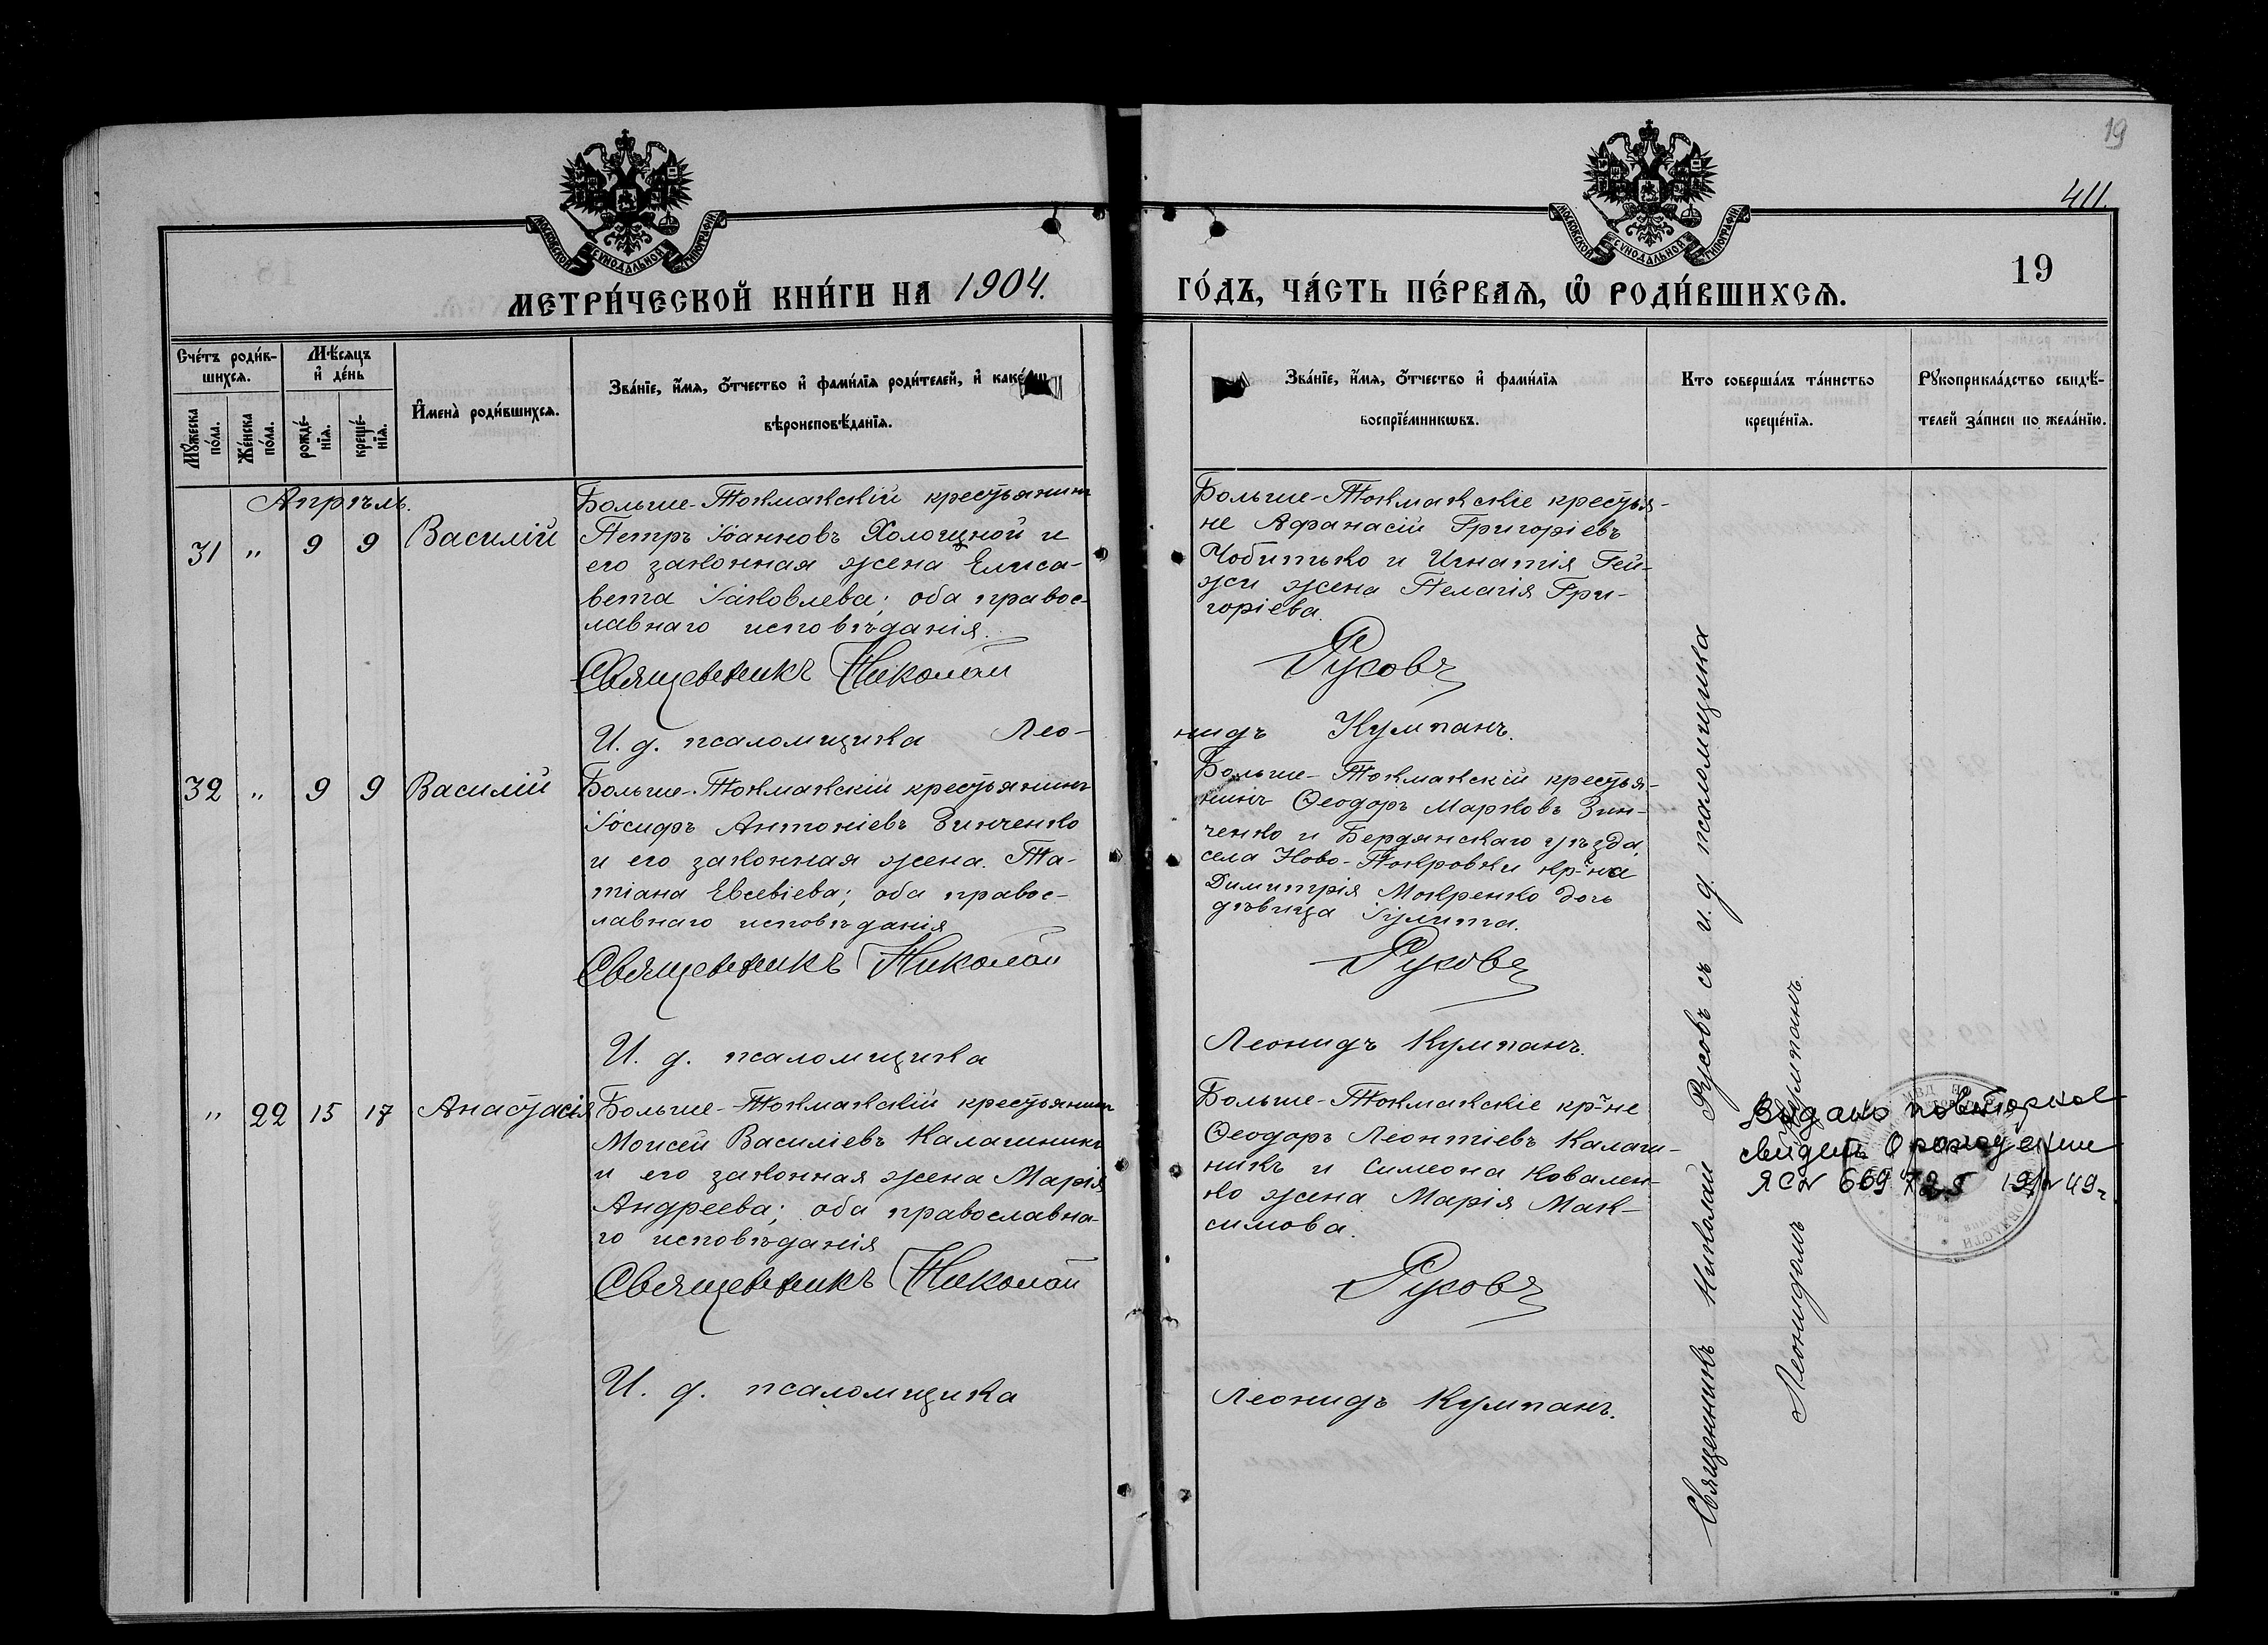 19
411.
МОСКОВСКОЙ СѴНОДАЛЬНОЙ ТИПОГРАФІИ
МОСКОВСКОЙ СѴНОДАЛЬНОЙ ТИПОГРАФІИ
МЕТРИ́ЧЕСКОЙ КНИ́ГИ НА 1904.
ГО́ДЪ, ЧА́СТЬ ПЕ́РВАѦ, Ѽ РОДИ́ВШИХСѦ.
19
Сче́тъ роди́в-
шихсѧ.
Мꙋ́жеска
по́ла.
Же́нска
по́ла.
Мѣ́сѧцъ
и҆ де́нь
рожде́-
нїѧ.
креще́-
нїѧ.
И҆мена̀ роди́вшихсѧ.
Зва́нїе, и҆́мѧ, ѻ҆́тчество и҆ фами́лїѧ роди́телей, и҆
вѣроисповѣ́данїѧ.
Зва́нїе, и҆́мѧ, ѻ҆́тчество и҆ фами́лїѧ
воспрїе́мникѡвъ.
Кто соверша́лъ та́инство
креще́нїѧ.
Рꙋкоприкла́дство свидѣ́-
телей за́писи по жела́нїю.
Апрѣль.
31 " 9 9 Василій
Больше-Токмакскій крестьянинъ
Петръ Іоанновъ Холощной и
его законная жена Елиса-
вета Іаковлева; оба правос-
лавнаго исповѣданія.
Священникъ Николай
И. д. псаломщика Лео-
Больше-Токмакскіе крестья-
не Афанасій Григоріевъ
Чобитько и Игнатія Гей-
жи жена Пелагія Гри-
горіева.
Русовъ
нидъ Кумпанъ.
32 " 9 9 Василій
Больше-Токмакскій крестьянинъ
Іосифъ Антоніевъ Зинченко
и его законная жена Та-
тіана Евсевіева; оба правос-
лавнаго исповѣданія
Священникъ Николай
И. д. псаломщика
Больше-Токмакскій крестья-
нинъ Ѳеодоръ Марковъ Зин-
ченко и Бердянскаго уѣзда,
села Ново-Покровки кр-на
Димитрія Мокренко дочь
дѣвица Іулита.
Русовъ
Леонидъ Кумпанъ.
" 22 15 17 Анастасія
Больше-Токмакскій крестьянинъ
Моисей Василіевъ Калашникъ
и его законная жена Марія
Андреева; оба православна-
го исповѣданія
Священникъ Николай
И. д. псаломщика
Больше-Токмакскіе кр-не
Ѳеодоръ Леонтіевъ Калаш-
никъ и Симеона Ковален-
ко жена Марія Мак-
симова.
Русовъ
Леонидъ Кумпанъ.
Священникъ Николай Русовъ съ и. д. псаломщика
Леонидомъ Кумпанъ.
Видано повторное
свидет. о рождении
ЯС№ 669725 49г.